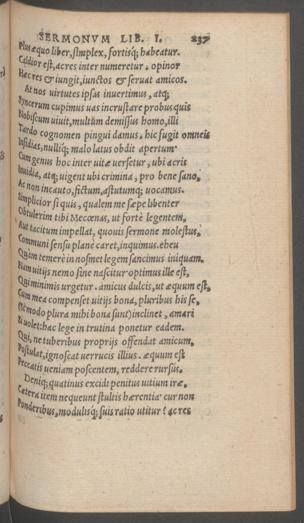 SERMONVM LIB. I. 237
Plus æquo liber, simplex, fortisq; habeatur.
Caldior est, acres inter numeretur. opinor
Hæc res & iungit, iunctos & seruat amicos.
At nos uirtutes ipsas inuertimus, atq;
Syncerum cupimus uas incrustare probus quis
Nobiscum uiuit, multùm demissus homo, illi
Tardo cognomen pingui damus. hic fugit omneis
Insidias, nulliq; malo latus obdit apertum.
Cum genus hoc inter uitæ uersetur, ubi acris
Inuidia, atq; uigent ubi crimina, pro bene sano,
Ac non incauto, fictum, astutumq; uocamus.
Simplicior si quis, qualem me sæpe libenter
Obtulerim tibi Mecœnas, ut fortè legentem,
Aut tacitum impellat, quouis sermone molestus,
Communi sensu planè caret, inquimus. eheu
Quàm temerè in nosmet legem sancimus iniquam.
Nam uitijs nemo sine nascitur optimus ille est,
Qui minimis urgetur. amicus dulcis, ut æquum est,
Cum mea compenset uitijs bona, pluribus his se,
(Si modo plura mihi bona sunt) inclinet, amari
Si uolet: hac lege in trutina ponetur eadem.
Qui, ne tuberibus proprijs offendat amicum,
Postulat, ignoscat uerrucis illius. æquum est
Peccatis ueniam poscentem, reddere rursus.
Deniq; quatinus excidi penitus uitium iræ,
Cætera item nequeunt stultis hærentia: cur non
Ponderibus, modulisq; suis ratio utitur? ac res